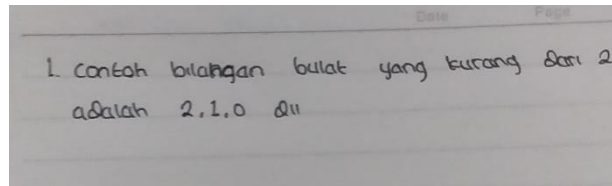 Date Page
1. Contoh bilangan bulat yang kurang dari 2
adalah 2.1.0 dll